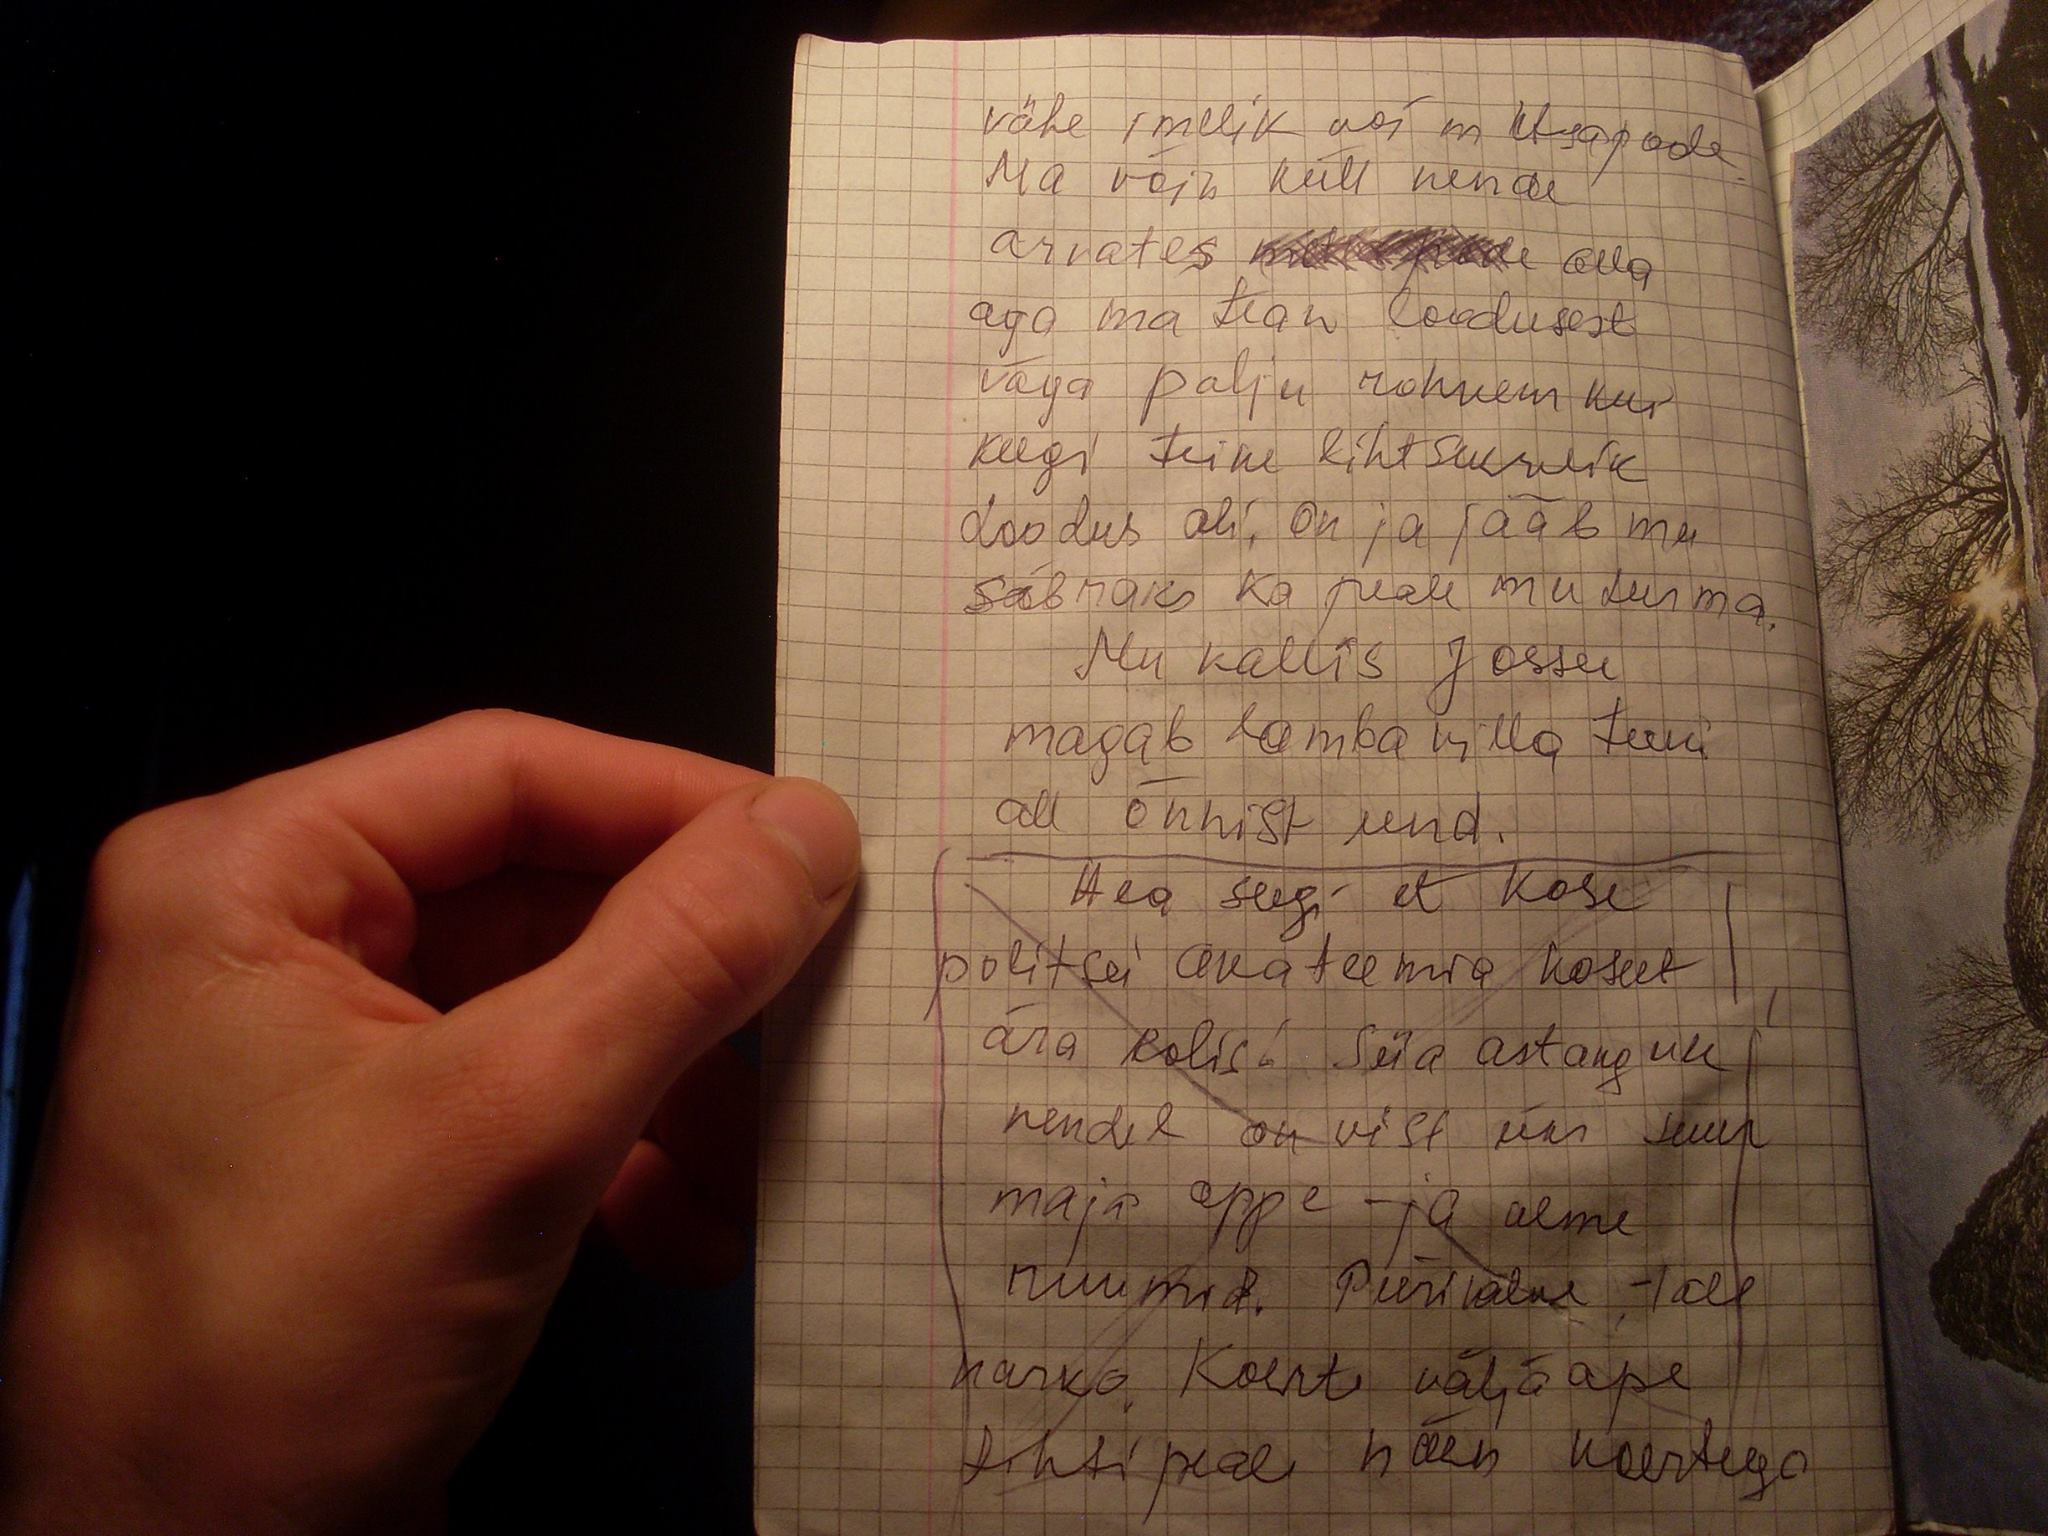 vähe imelik või mittsapade
Ma võin küll nende
arvates olla
aga ma tean loodusest
väga palju rohkem kui
keegi teine lihtsureelik
Loodus oli, on ja jääb mu
sõbraks ka peale mu surma.
Mu kallis Jossu
magab lambavilla teki
all õnnist und.
Hea seegi et Kose
politsei akateemia koseet
ära kolis! Siia astangule
nendel on vist üks suur
maja õppe - ja olme
ruumid. Piirivalve,
narko. Koerte väljaõpe
Tihti peale näen koertega